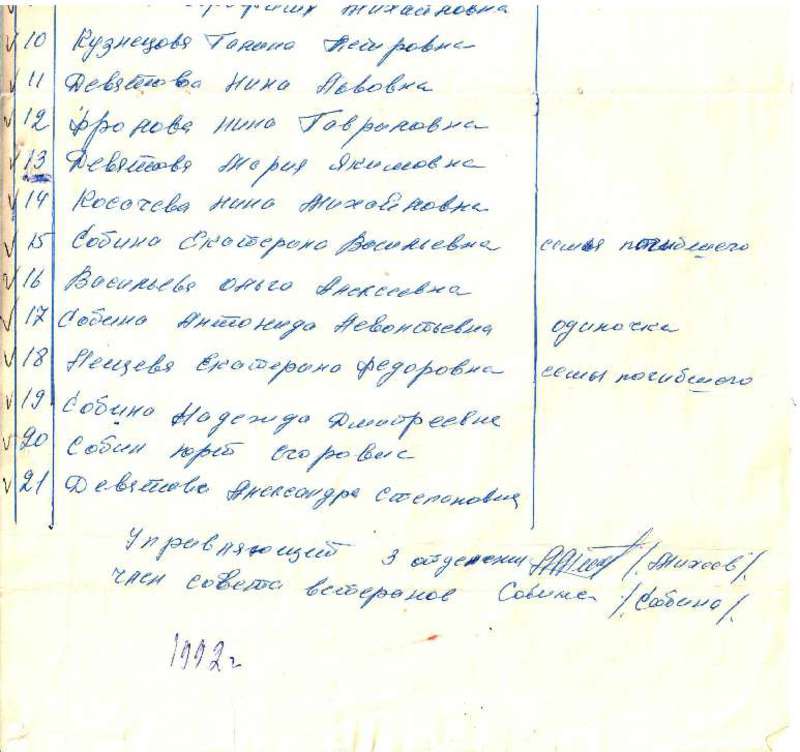 Михайловна
10 Кузнецова Галина Петровна
11 Девятова Нина Львовна
12 Фролова Нина Гавриловна
13 Девятова Мария Якимовна
14 Косачева Нина Михайловна
15 Собина Екатерина Васильевна семья погибшего
16 Васильева Ольга Алексеевна
17 Собина Антонида Левонтьевна одиночка
18 Екатерина Федоровна семья погибшего
19 Собина Надежда Дмитреевна
20 Собин Юрий Егорович
21 Девятова Александра Степановна
Управляющий 3 отделения /Михеев/.
член совета ветеранов Собина /Собина/.
1992 г